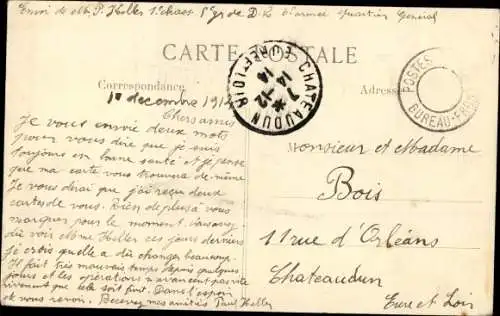 Envoi de M. P. Heller 1er chass 5e Gr de D. 2e armée Quartier Général
CARTE POSTALE
Correspondance
Adresse
CHATEAUDUN
7-12
14
EURE-ET-LOIR
POSTES
BUREAU-FR
10 decembre 1914
Chers amis
Je vous envoie deux mots
pour vous dire que je suis
toujours en bonne santé et je pense
que ma carte vous trouvera de même
Je vous dirai que j'ai reçu deux
cartes de vous. Rien de plus à vous
marquer pour le moment.
dû voir Mme Heller ces jours derniers
je crois qu'elle a dû changer beaucoup.
Il fait très mauvais temps depuis quelques
jours et les opérations n'avancent pas vite
vivement que cela soit fini. Dans l'espoir
de vous revoir. Recevez mes amitiés Paul Heller
Monsieur et Madame
Bois
11 rue d'Orléans
Chateaudun
Eure et Loir